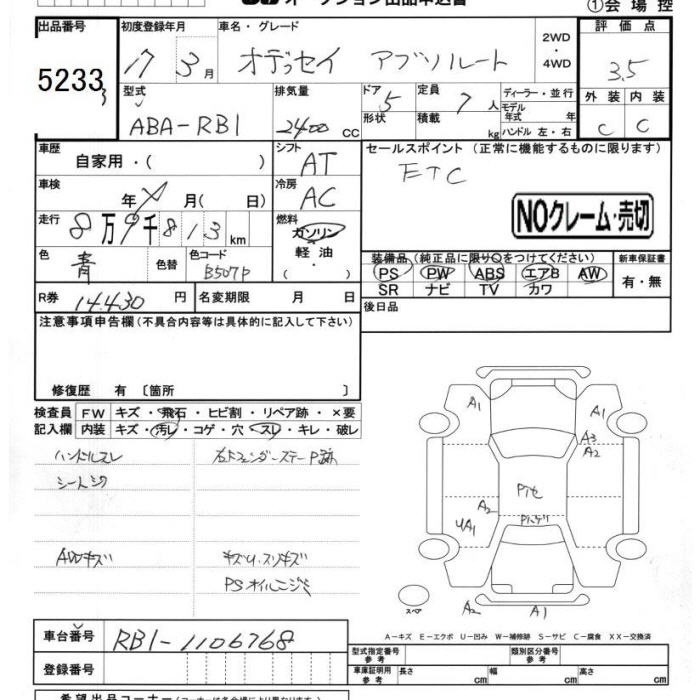 オークション出品申込書
①会場控
出品番号 初度登録年月 車名・グレード 評価点
5233 17 3月 オデッセイ アブソルート 2WD・4WD 3.5
型式 排気量 ドア 5 定員 7人 ディーラー・並行 外装 内装
ABA-RB1 2400 cc 形状 積載 kg モデル年式 年 C C
ハンドル 左・右
車歴 自家用・( ) シフト AT セールスポイント (正常に機能するものに限ります)
ETC
車検 年 月( 日) 冷房 AC
NOクレーム・売切
走行 8万9千813km 燃料 ガソリン
軽油・
色 青 色替 色コード B507P
装備品(純正品に限り○をつけてください) 新車保証書
PS PW ABS エアB AW 有・無
SR ナビ TV カワ
R券 14,430円 名変期限 月 日 後日品
注意事項申告欄(不具合内容等は具体的に記入して下さい)
修復歴 有 〔箇所 〕
検査員 FW キズ・飛石・ヒビ割・リペア跡・×要
記入欄 内装 キズ・汚レ・コゲ・穴・スレ・キレ・破レ
ハンドルスレ
シートシワ
AWキズ キズU.スリキズ
PSオイルニジミ
A1 A1
A3
A2
A2
UA1
スペア A2 A1
A-キズ E-エクボ U-凹み W-補修跡 S-サビ C-腐食 XX-交換済
車台番号 RB1-1106768
登録番号
型式指定番号 参考 類別区分番号 参考
車庫証明用 参考 長さ cm 幅 cm 高さ cm
希望出品コーナー